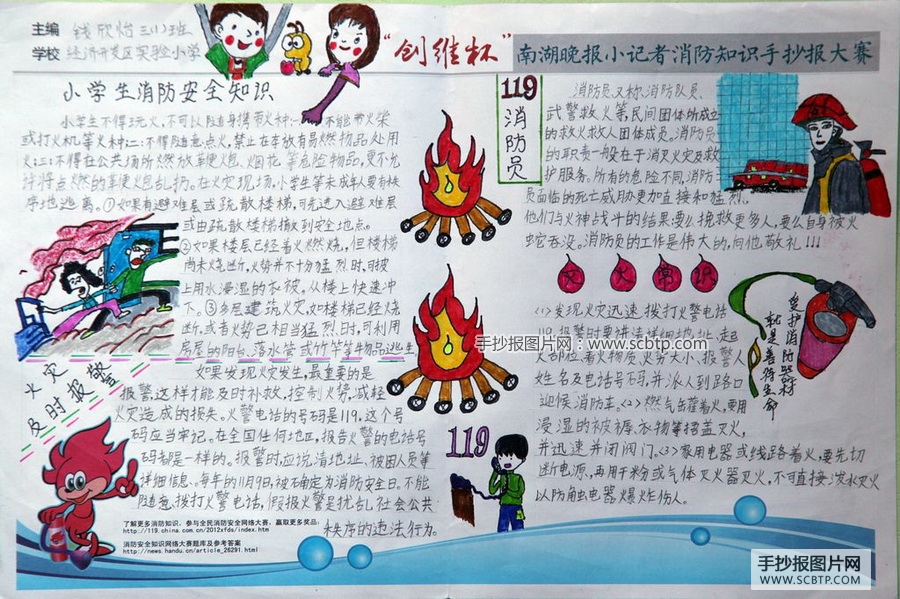 主编 钱欣怡 三(1)班
学校 经济开发区实验小学
“创维杯”南湖晚报小记者消防知识手抄报大赛
小学生消防安全知识
小学生不得玩火,不可以随身携带火种,不能带火柴
或打火机等火种;二:不得随意点火,禁止在存放有易燃物品处用
火;三:不得在公共场所燃放鞭炮、烟花等危险物品,更不允
许将点燃的鞭炮乱扔。在火灾现场,小学生等未成年人要有秩
序地逃离。①如果有避难层或疏散楼梯,可先进入避难层
或由疏散楼梯撤到安全地点。
②如果楼层已经着火燃烧,但楼梯
尚未烧断,火势并不十分猛烈时,可披
上用水浸湿的衣被,从楼上快速冲
下。③多层建筑火灾,如楼梯已经烧
断,或者火势已相当猛烈时,可利用
房屋的阳台、落水管或竹竿等物品逃生。
火灾
及时报警
如果发现火灾发生,最重要的是
报警,这样才能及时补救,控制火势,减轻
火灾造成的损失。火警电话的号码是119,这个号
码应当牢记,在全国任何地区,报告火警的电话号
码都是一样的。报警时,应说清地址、被困人员等
详细信息。每年的11月9日,被下确定为消防安全日。不能
随意拨打火警电话,假报火警是扰乱社会公共
秩序的违法行为。
了解更多消防知识,参与全民消防安全网络大赛,赢取更多奖品:
http://119.china.com.cn/2012xfds/index.htm
消防安全知识网络大赛题库及参考答案
http://news.handu.cn/article_26291.html
119
消防员
消防员又称消防队员、
武警救火等,民间团体所成立
的救火救人团体成员。消防员
的职责一般在于消灭火灾及救
护服务。所有的危险不同,消防
员面临的死亡威胁更加直接和猛烈,
他们与火神战斗的结果要么挽救更多人,要么自身被火
蛇吞没。消防员的工作是伟大的,向他敬礼!!!
灭火常识
<1>发现火灾迅速拨打火警电话
119,报警时要讲清详细地址、起
火部位、着火物质、火势大小、报警人
姓名及电话号码,并派人到路口
迎候消防车。<2>燃气缶罐着火,要用
浸湿的被褥、衣物等捂盖灭火,
并迅速并闭阀门。<3>家用电器或线路着火,要先切
断电源,再用干粉或气体灭火器灭火,不可直接泼水灭火
以防触电器爆炸伤人。
爱护消防器材
就是善待生命
119
手抄报图片网:www.scbtp.com
手抄报图片网
WWW.SCBTP.COM